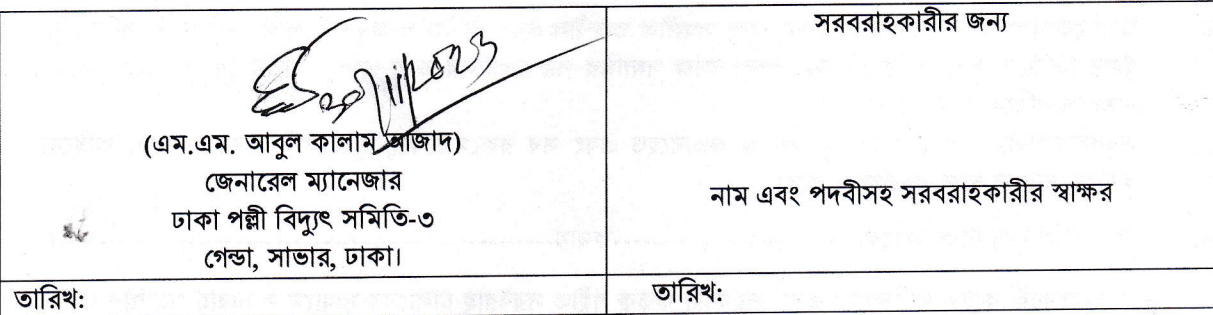 সরবরাহকারীর জন্য
(এম.এম. আবুল কালাম আজাদ)
জেনারেল ম্যানেজার
ঢাকা পল্লী বিদ্যুৎ সমিতি-৩
গেন্ডা, সাভার, ঢাকা।
নাম এবং পদবীসহ সরবরাহকারীর স্বাক্ষর
তারিখ:
তারিখ: